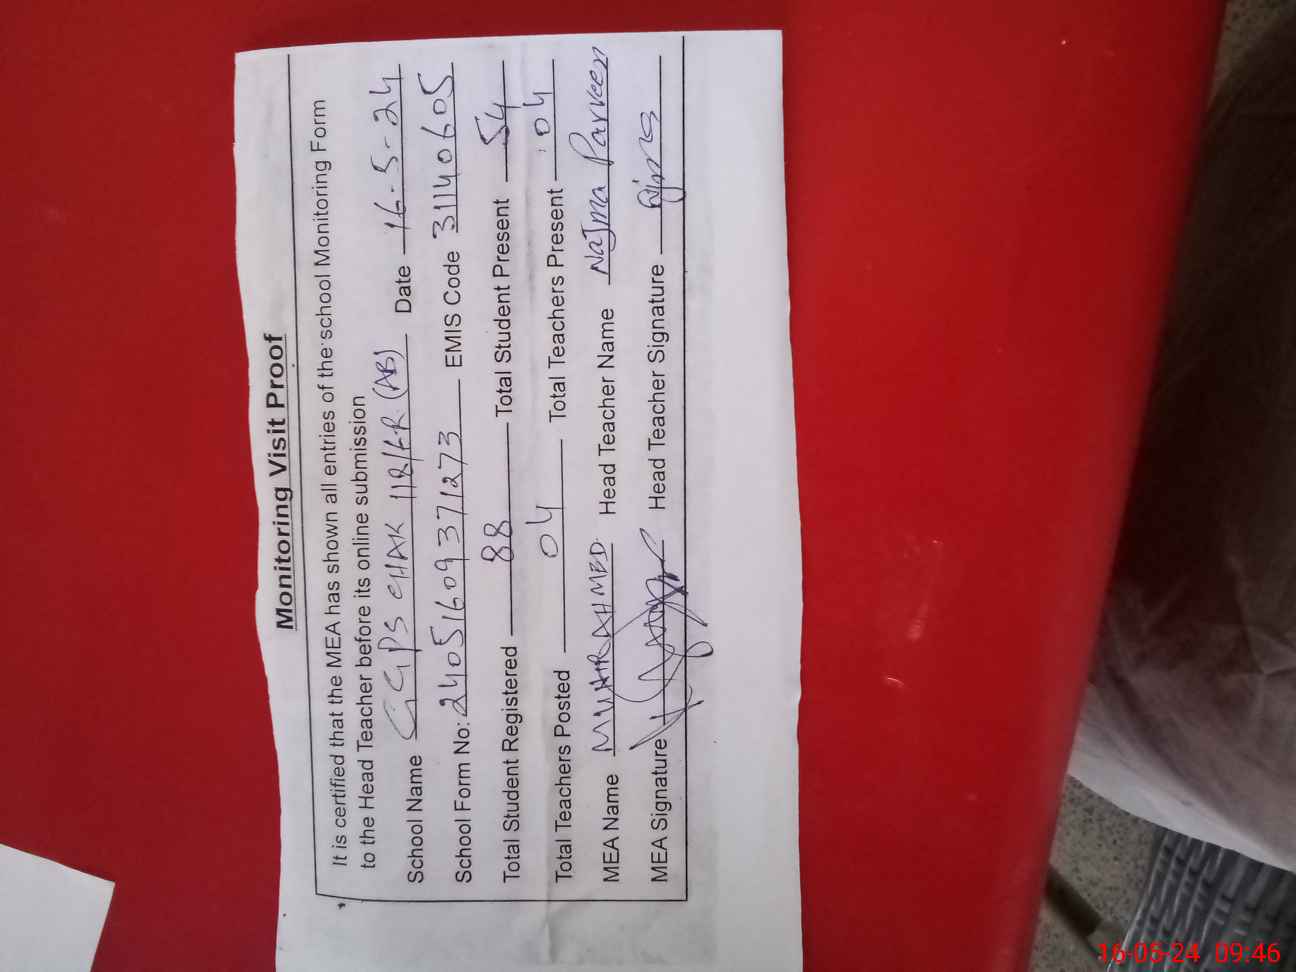 Monitoring Visit Proof
It is certified that the MEA has shown all entries of the school Monitoring Form
to the Head Teacher before its online submission
School Name GGPS CHAK 118/ER (AB) Date 16-5-24
School Form No: 24051609371273 EMIS Code 31140605
Total Student Registered 88 Total Student Present 54
Total Teachers Posted 04 Total Teachers Present 04
MEA Name AHMED Head Teacher Name Najma Parveen
MEA Signature Head Teacher Signature
16-05-24 09:46